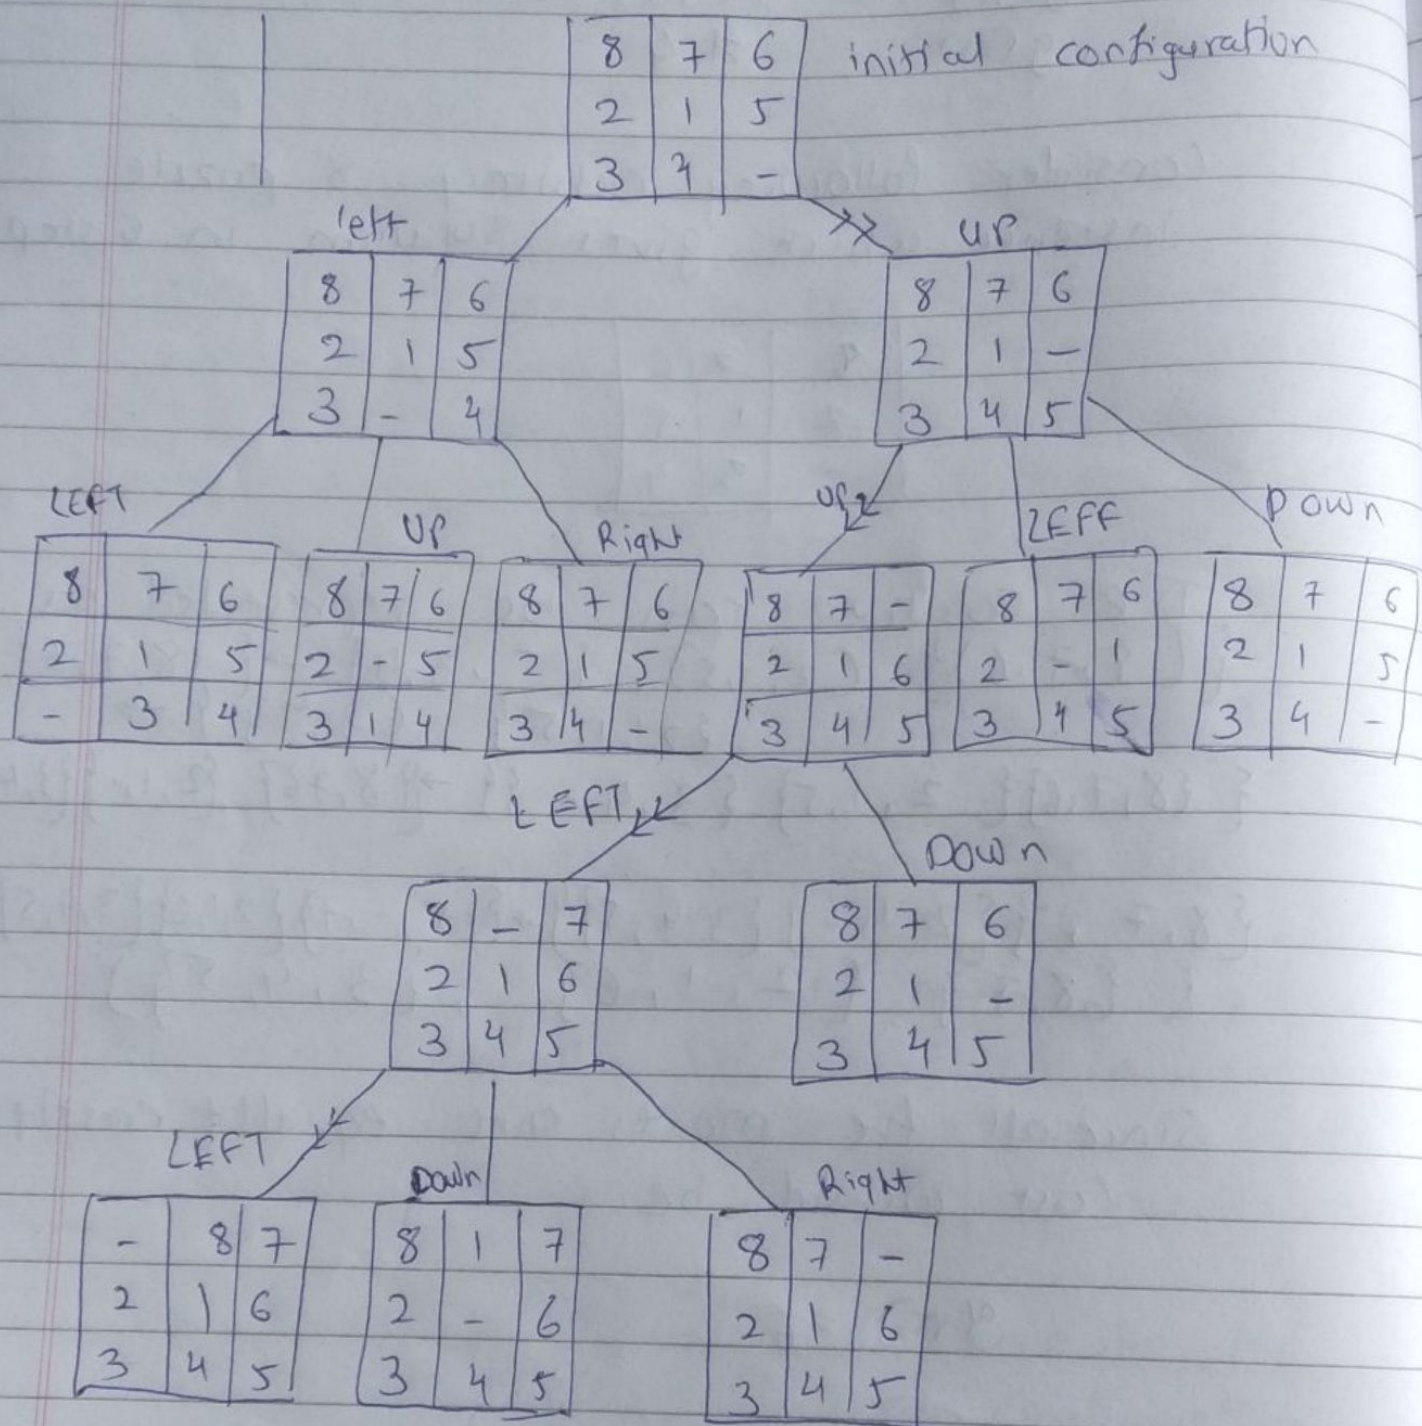 8 7 6 initial configuration
2 1 5
3 4 -
left
8 7 6
2 1 5
3 - 4
UP
8 7 6
2 1 -
3 4 5
LEFT
8 7 6
2 1 5
- 3 4
UP
8 7 6
2 - 5
3 1 4
Right
8 7 6
2 1 5
3 4 -
UP
8 7 -
2 1 6
3 4 5
LEFF
8 7 6
2 - 1
3 4 5
Down
8 7 6
2 1 5
3 4 -
LEFT
8 - 7
2 1 6
3 4 5
Down
8 7 6
2 1 -
3 4 5
LEFT
- 8 7
2 1 6
3 4 5
Down
8 1 7
2 - 6
3 4 5
Right
8 7 -
2 1 6
3 4 5